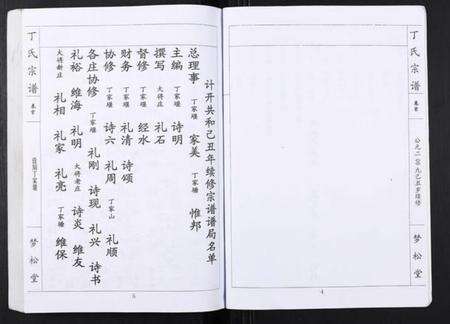 丁氏宗谱
卷首
公元二零零九己丑岁续修
梦松堂
4
计开共和己丑年续修宗谱谱局名单
总理事 丁家堰 家美 丁家堰 惟邦
主编 丁家堰 诗明
撰写 大蒋庄 礼石
督修 丁家堰 经水
财务 丁家堰 礼清 诗颂
协修 丁家堰 诗六 礼周 丁家山 礼顺
各庄协修 丁家堰 礼刚 诗现 礼兴 诗书
礼裕 维海 礼明 大蒋老庄 诗炎 维友
大蒋新庄 礼相 礼家 礼亮 丁家塘 维保
5
丁氏宗谱
卷首
梦松堂